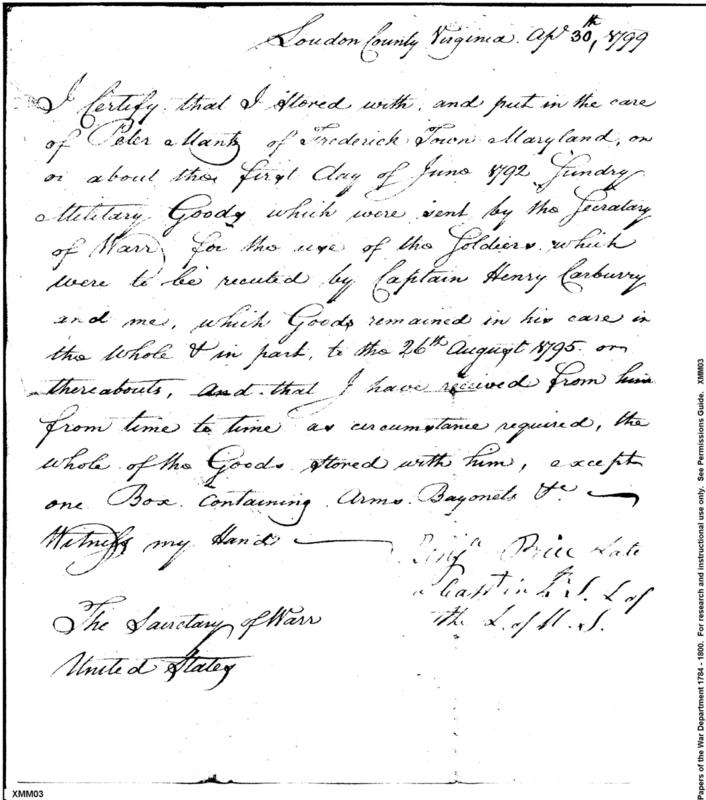 Loudon County Virginia. Apl 30th, 1799
I Certify that I stored with, and put in the care
of Peter Mantz of Frederick Town Maryland, on
or about the first day of June 1792 Sundry
Military Goods which were sent by the Secratary
of Warr for the use of the Soldiers which
were to be recuted by Captain Henry Carburry
and me, which Goods remained in his care in
the whole & in part, to the 26th August 1795 or
thereabouts, and that I have received from him
from time to time as circumstance required, the
whole of the Goods stored with him, except
one Box containing Arms Bayonets &c
Witness my Hand
Benja Price Late
a Capt in S. L of
the L. of U. S.
The Saicretary of Warr
United States
XMM03
Papers of the War Department 1784 - 1800. For research and instructional use only. See Permissions Guide. XMM03